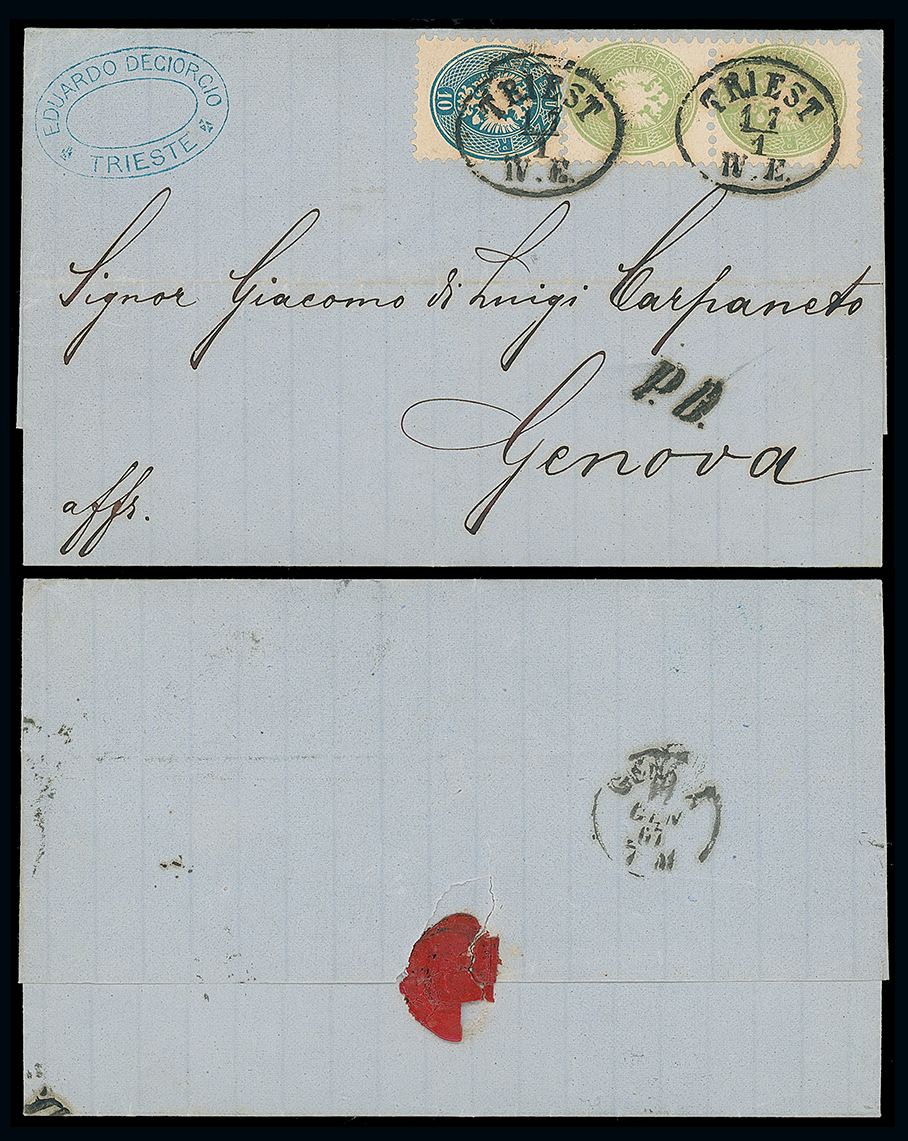 EDUARDO DECIORCIO
TRIESTE
10
TRIEST
17
1
IV. E.
TRIEST
17
1
IV. E.
Signor Giacomo di Luigi Carpaneto
P. D.
Genova
affr.
GEN